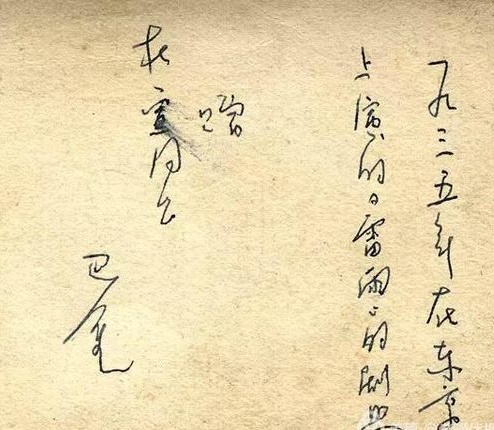 一九三五年在东京
上演的“雷雨”的剧照
赠
杜宣同志
巴金